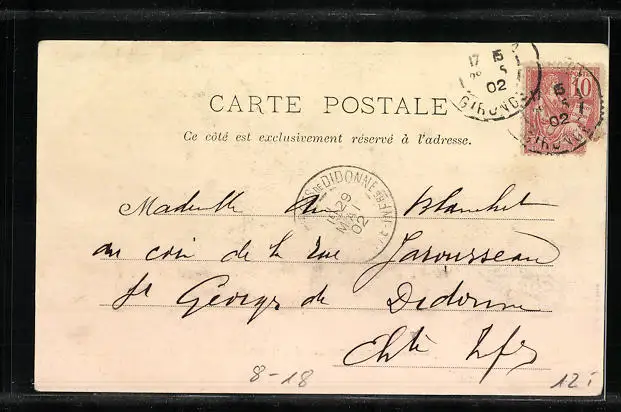 CARTE POSTALE
Ce côté est exclusivement réservé à l'adresse.
17 15
5
02
GIRONDE
10
5
02
GIRONDE
DE DIDONNE
29
MAI
02
Blanchet
au coin de la rue Jarousseau
St Georges de Didonne
Chte Infre
8-18
12